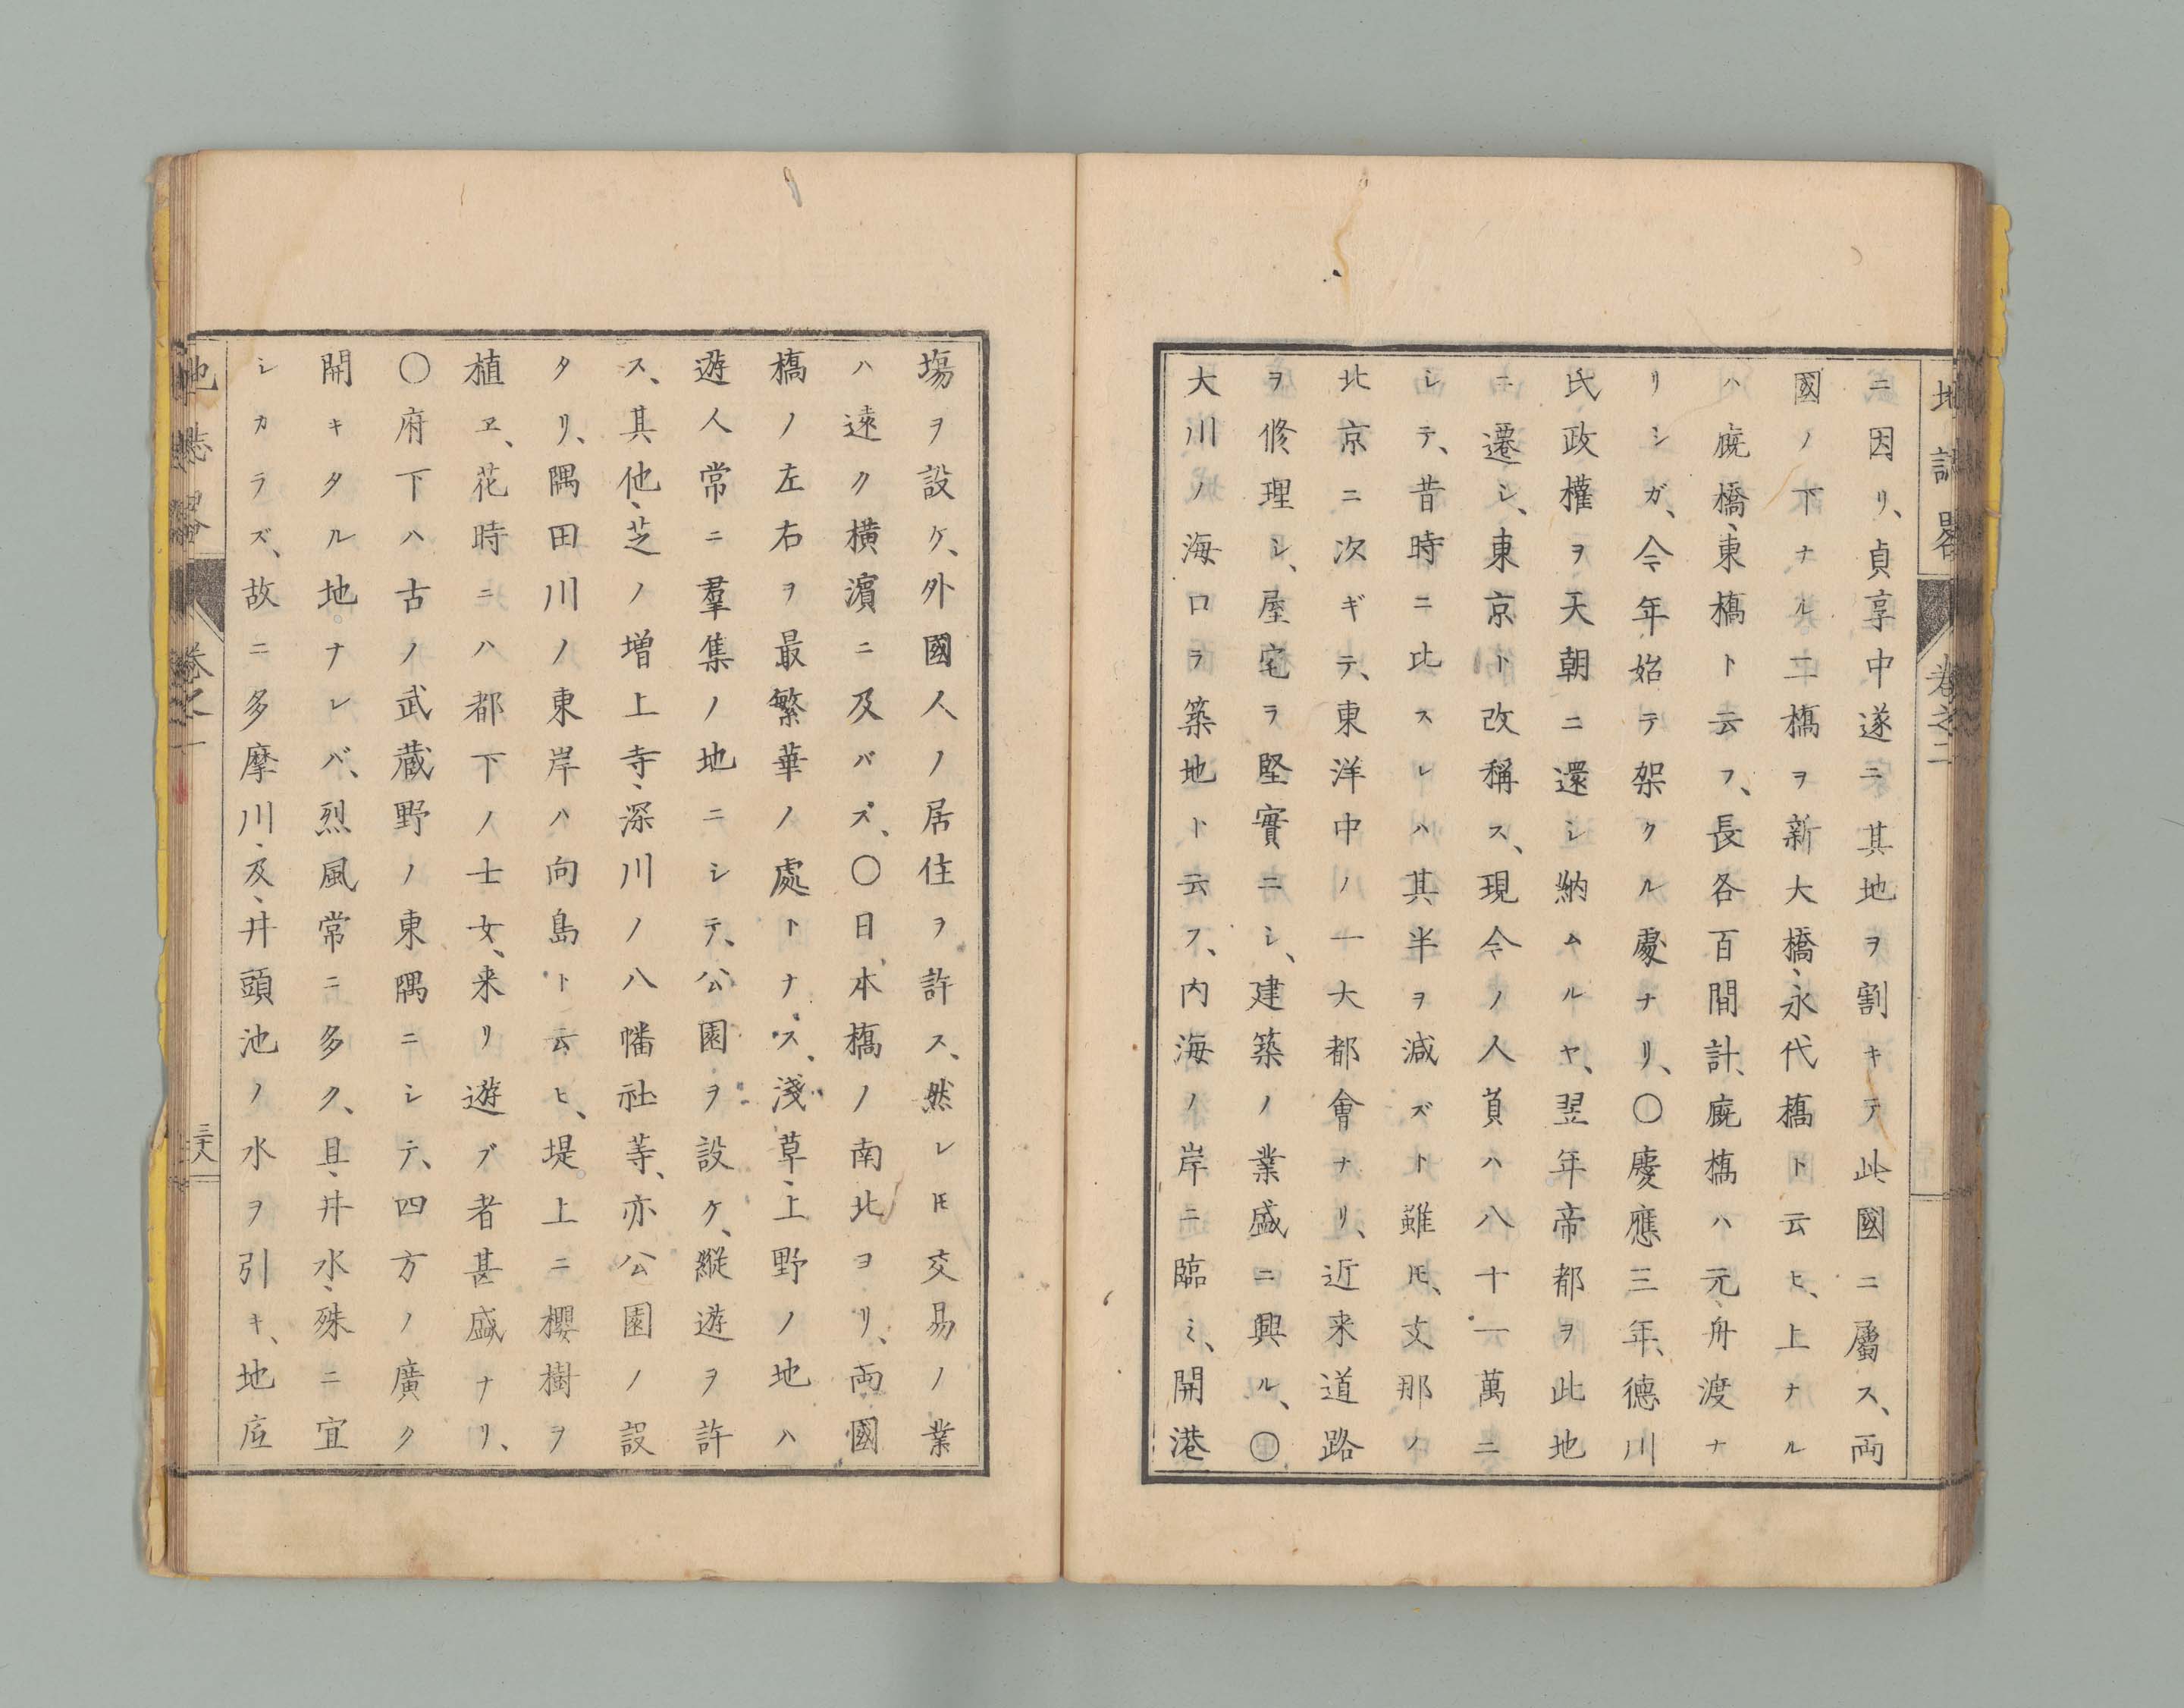 地誌畧 巻之二
ニ因リ、貞享中遂ニ其地ヲ割キテ此國ニ屬ス、両
國ノ下ナル二橋ヲ新大橋、永代橋ト云ヒ、上ナル
ハ廐橋、東橋ト云フ、長各百間計、廐橋ハ元、舟渡ナ
リシガ、今年始テ架クル處ナリ、〇慶應三年、德川
氏政權ヲ天朝ニ還シ納ムルヤ、翌年帝都ヲ此地
ニ遷シ、東京ト改稱ス、現今ノ人員ハ八十一萬ニ
シテ、昔時ニ比スレハ其半ヲ減ズト雖𪜈、支那ノ
北京ニ次ギテ、東洋中ノ一大都會ナリ、近来道路
ヲ修理シ、屋宅ヲ堅實ニシ、建築ノ業盛ニ興ル、〇
大川ノ海口ヲ築地ト云フ、内海ノ岸ニ臨ミ、開港
塲ヲ設ケ、外國人ノ居住ヲ許ス、然レ𪜈交易ノ業
ハ遠ク横濱ニ及バズ、〇日本橋ノ南北ヨリ、両國
橋ノ左右ヲ最繁華ノ處トナス、淺草、上野ノ地ハ
遊人常ニ羣集ノ地ニシテ、公園ヲ設ケ、縱遊ヲ許
ス、其他、芝ノ増上寺、深川ノ八幡社等、亦公園ノ設
タリ、隅田川ノ東岸ハ向島ト云ヒ、堤上ニ櫻樹ヲ
植ヱ、花時ニハ都下ノ士女、来リ遊ブ者甚盛ナリ、
〇府下ハ古ノ武蔵野ノ東隅ニシテ、四方ノ廣ク
開キタル地ナレバ、烈風常ニ多ク、且、井水、殊ニ宜
シカラズ、故ニ多摩川、及、井頭池ノ水ヲ引キ、地底
地誌畧 巻之二 三十六